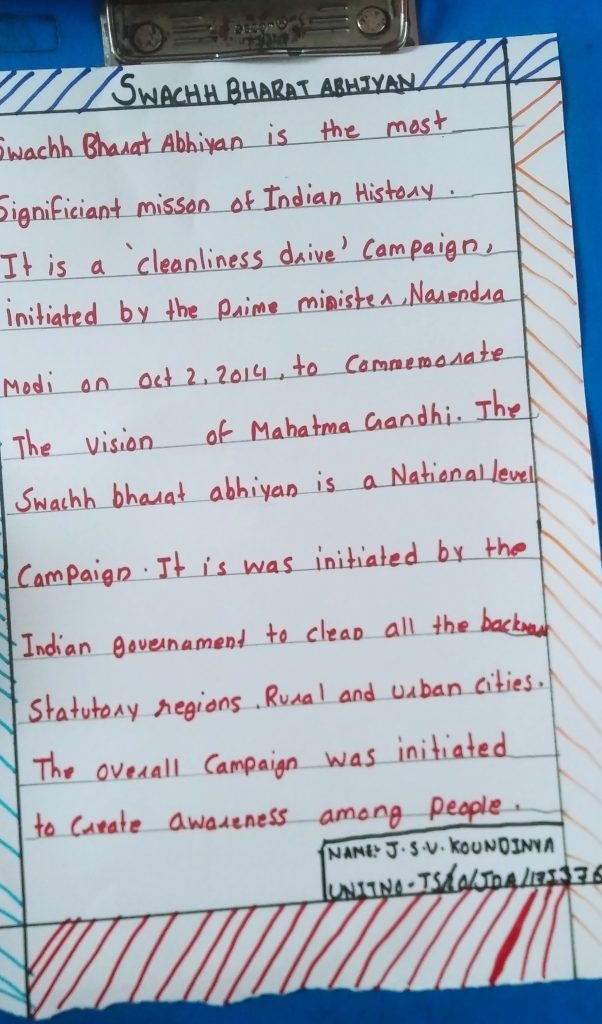 SWACHH BHARAT ABHIYAN
Swachh Bharat Abhiyan is the most
Significiant misson of Indian History.
It is a 'cleanliness drive' Campaign,
initiated by the Prime minister, Narendra
Modi on Oct 2, 2014, to Commemorate
The vision of Mahatma Gandhi. The
Swachh bharat abhiyan is a National level
Campaign. It is was initiated by the
Indian governament to clean all the
Statutory regions, Rural and urban cities.
The overall Campaign was initiated
to Create awareness among People.
NAME:- J.S.V. KOUNDINYA
UNITNO-